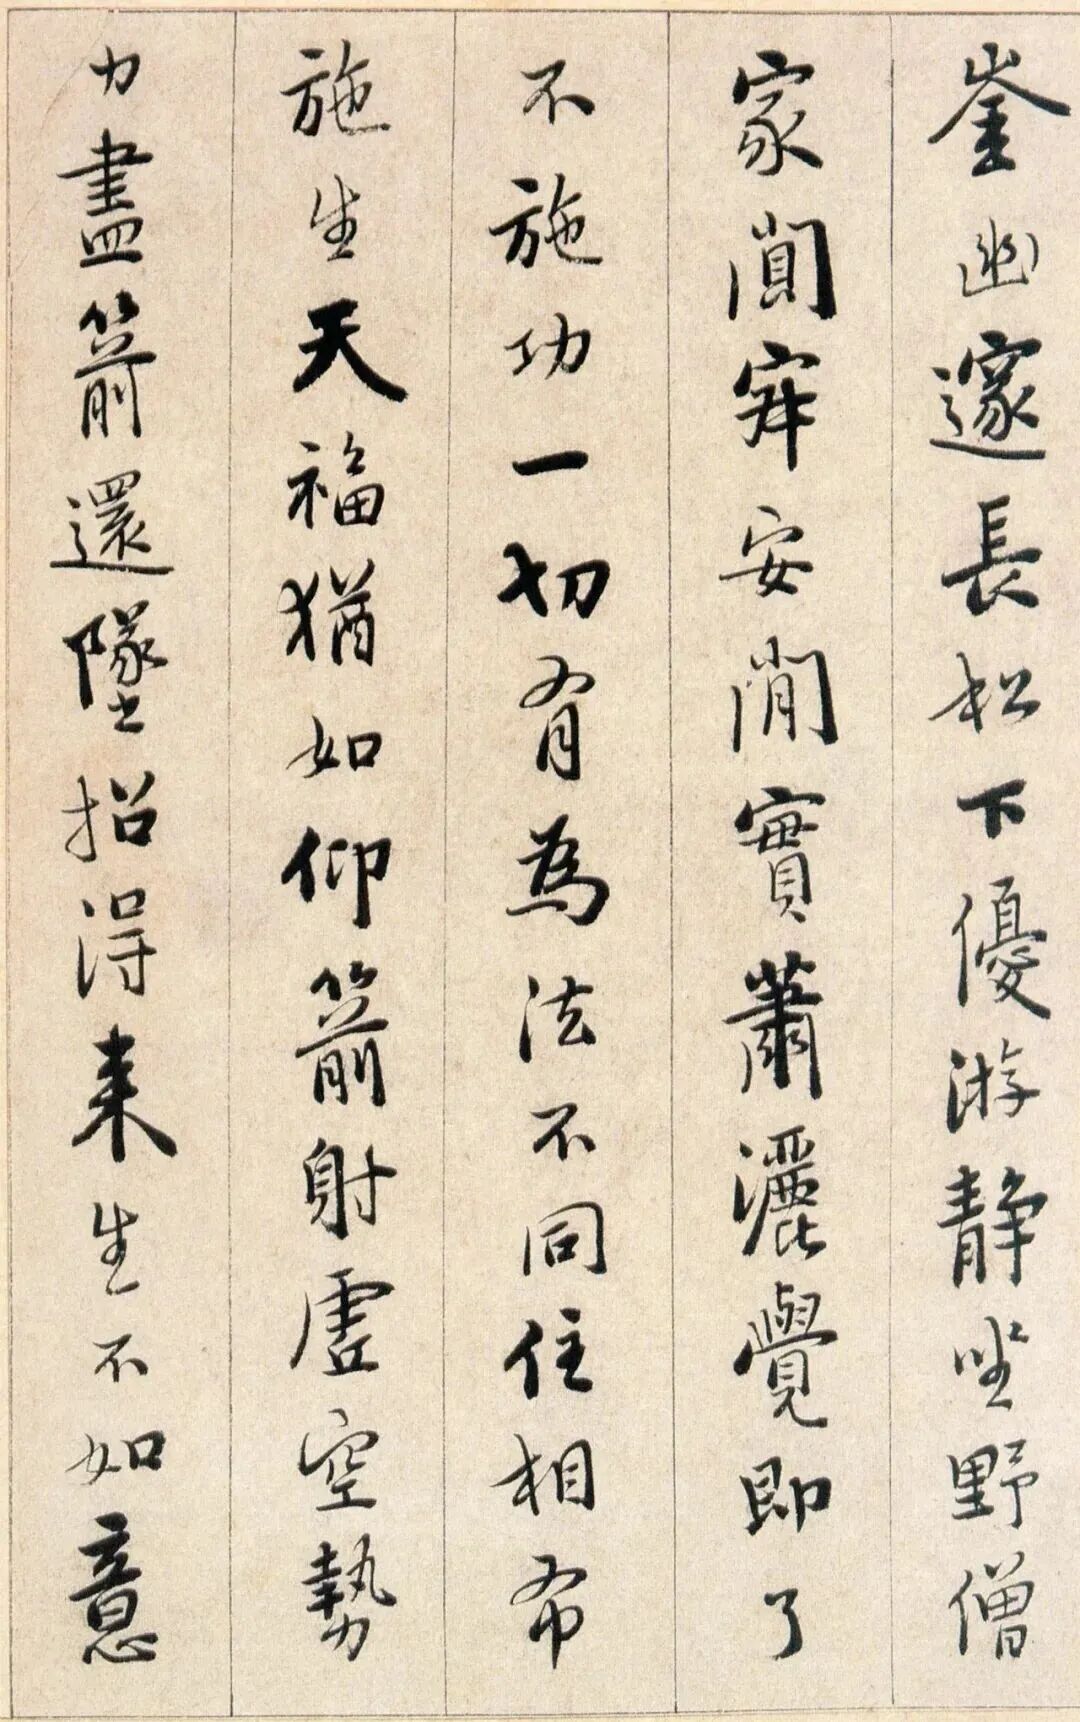 崟幽邃長松下優游静坐野僧
家閴寂安閑實蕭灑覺即了
不施功一切有為法不同住相布
施生天福猶如仰箭射虛空勢
力盡箭還墜招得来生不如意